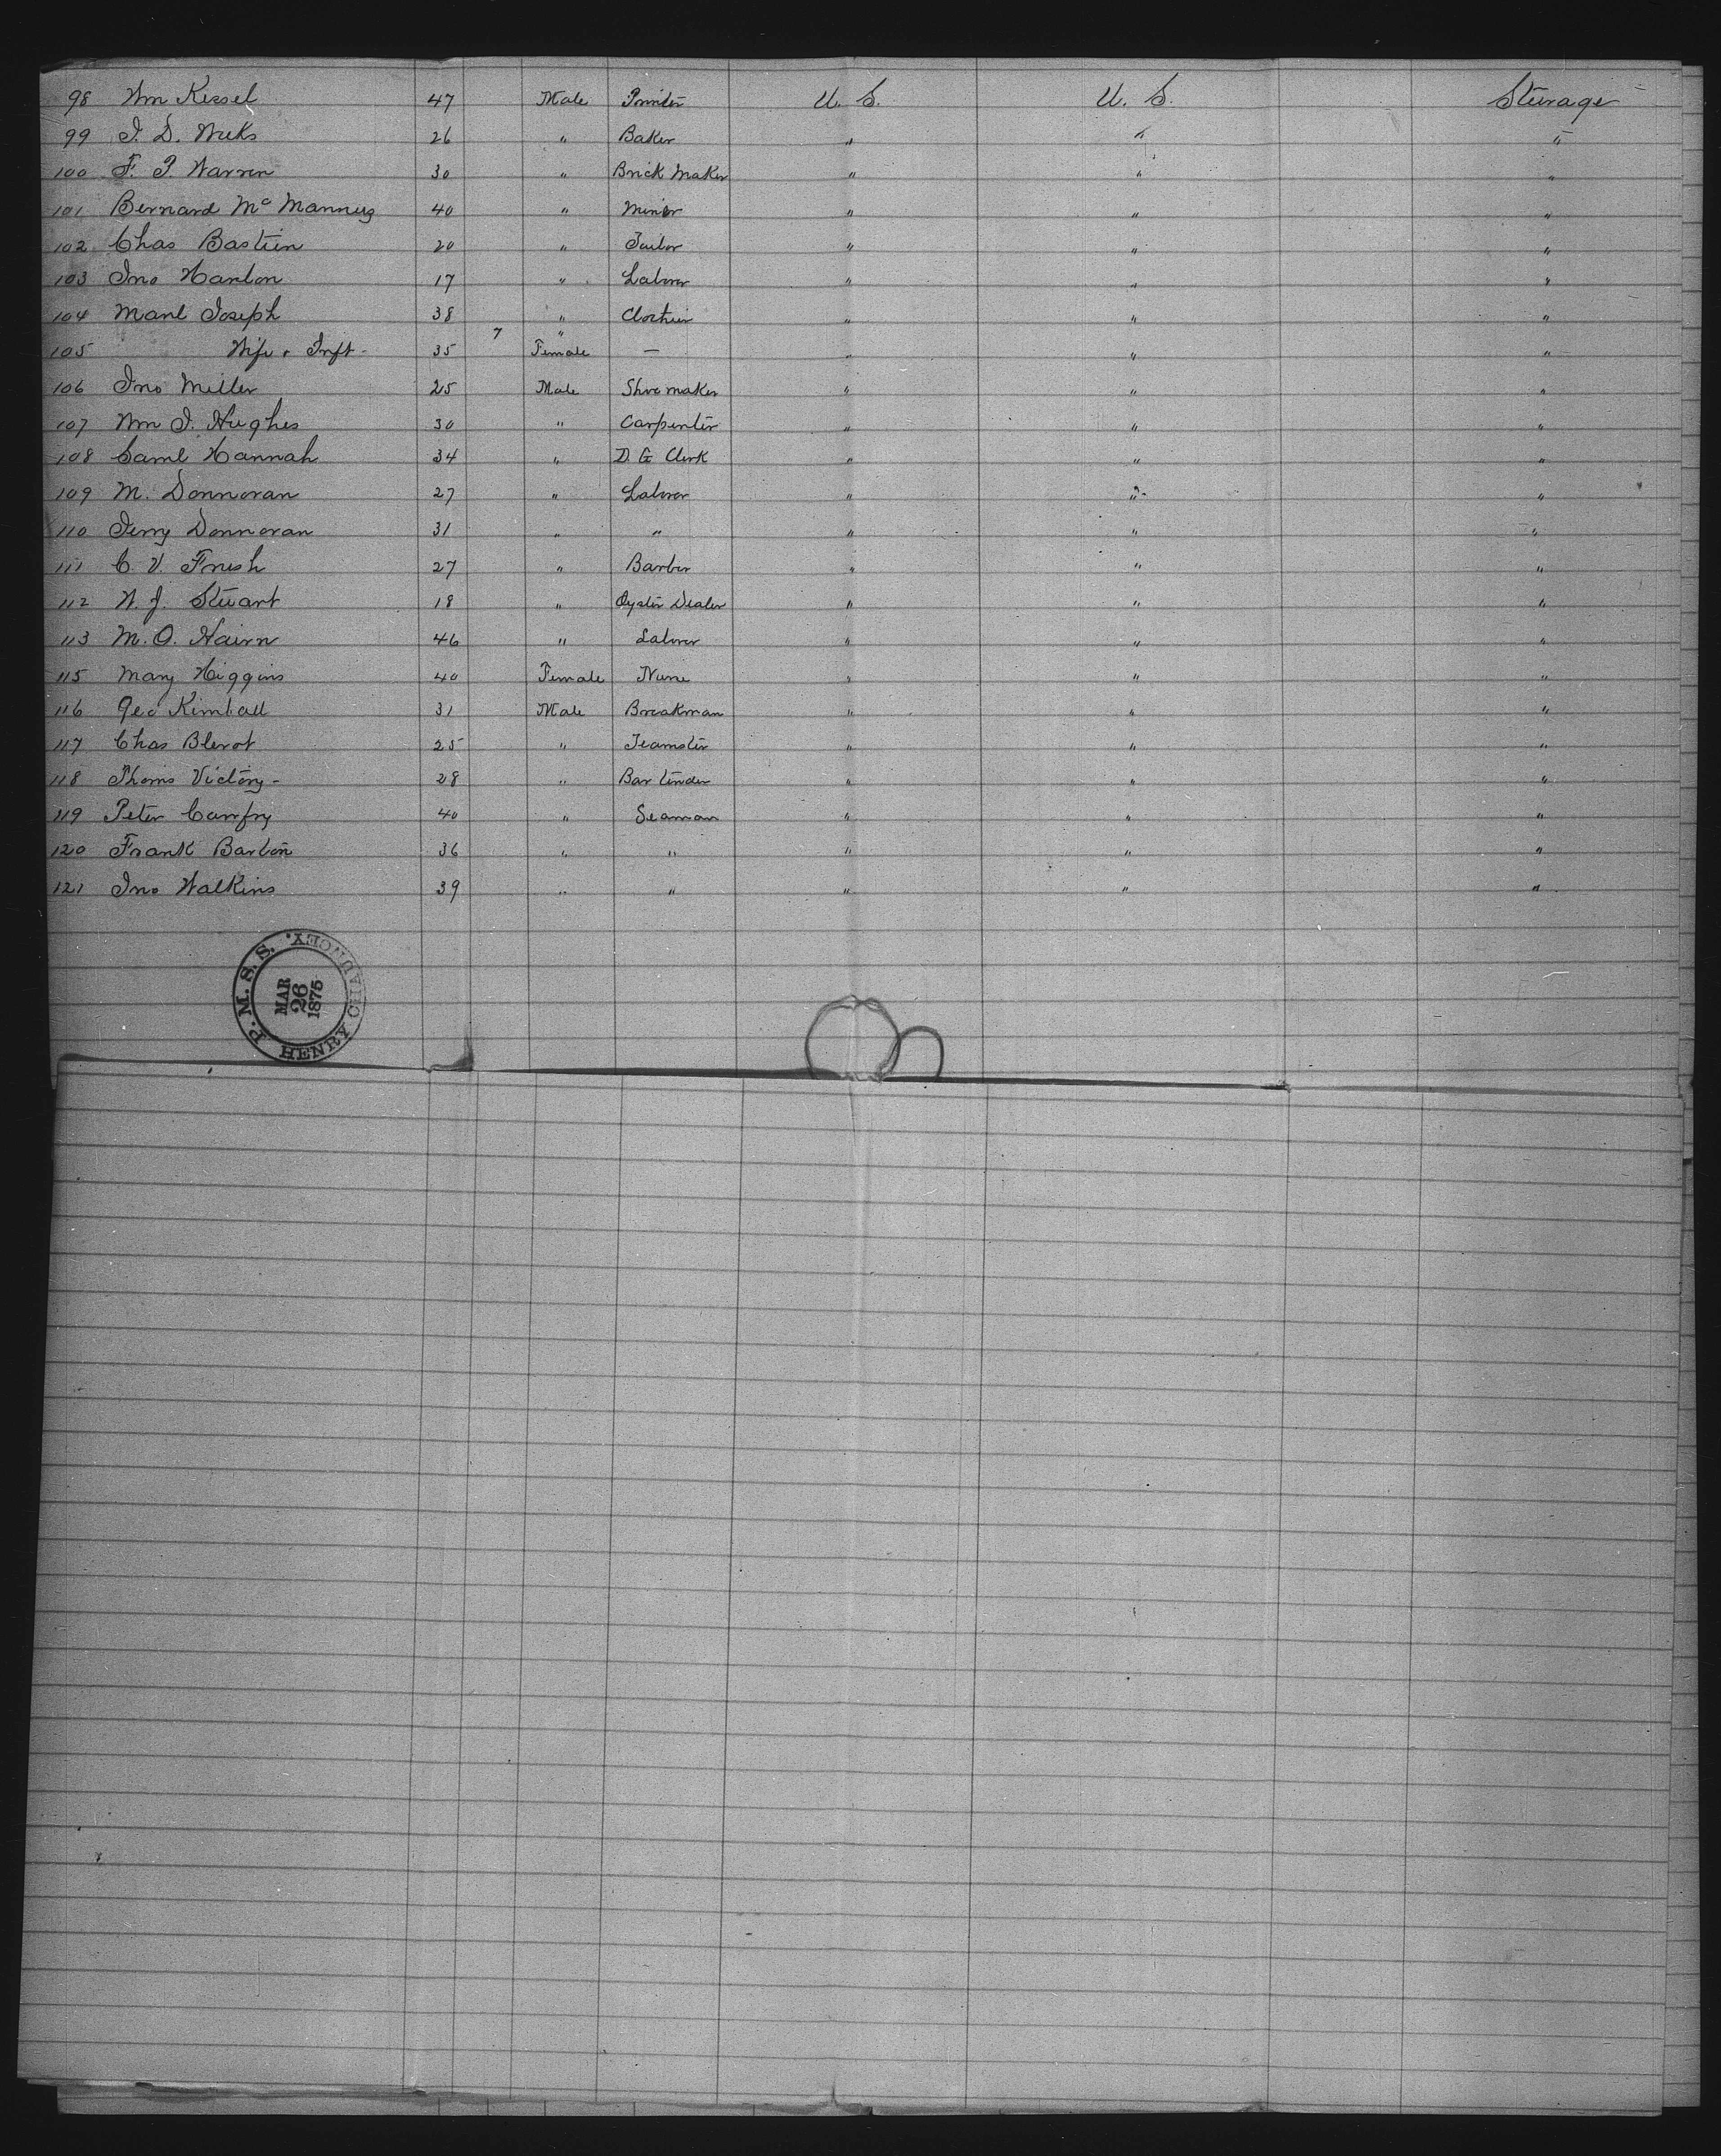 98 Wm Kessel 47 Male Printer U. S. U. S. Steerage
99 J. D. Weeks 26 " Baker " " "
100 F. P. Warren 30 " Brick Maker " " "
101 Bernard Mc Mannus 40 " Miner " " "
102 Chas Bastien 20 " Tailor " " "
103 Jno Hanlon 17 " Laborer " " "
104 Joseph 38 " Clothier " " "
7 "
105 Wife & Inft - 35 Female — " " "
106 Jno Miller 25 Male Shoe maker " " "
107 Wm J. Hughes 30 " Carpenter " " "
108 Saml Hannah 34 " D. G Clerk " " "
109 M. Donnovan 27 " Laborer " " "
110 Jerry Donnovan 31 " " " " "
111 C. V. 27 " Barber " " "
112 W. J. Stuart 18 " Oyster Dealer " " "
113 M. O. Hairn 46 " Laborer " " "
115 Mary Higgins 40 Female Nurse " " "
116 Geo Kimball 31 Male Breakman " " "
117 Chas Blerot 25 " Teamster " " "
118 Thoms Victory - 28 " Bar tender " " "
119 Peter 40 " Seaman " " "
120 Frank Barton 36 " " " " "
121 Jno Walkins 39 " " " " "
P. M. S. S. HENRY CHAUNCEY.
MAR
26
1875